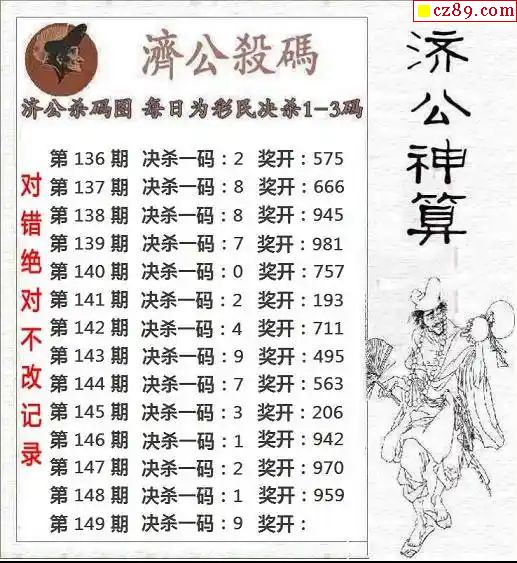 cz89.com
濟公殺碼
济公杀码图 每日为彩民决杀1-3码
第 136 期 决杀一码：2 奖开：575
第 137 期 决杀一码：8 奖开：666
第 138 期 决杀一码：8 奖开：945
第 139 期 决杀一码：7 奖开：981
第 140 期 决杀一码：0 奖开：757
第 141 期 决杀一码：2 奖开：193
第 142 期 决杀一码：4 奖开：711
第 143 期 决杀一码：9 奖开：495
第 144 期 决杀一码：7 奖开：563
第 145 期 决杀一码：3 奖开：206
第 146 期 决杀一码：1 奖开：942
第 147 期 决杀一码：2 奖开：970
第 148 期 决杀一码：1 奖开：959
第 149 期 决杀一码：9 奖开：
对错绝对不改记录
济公神算